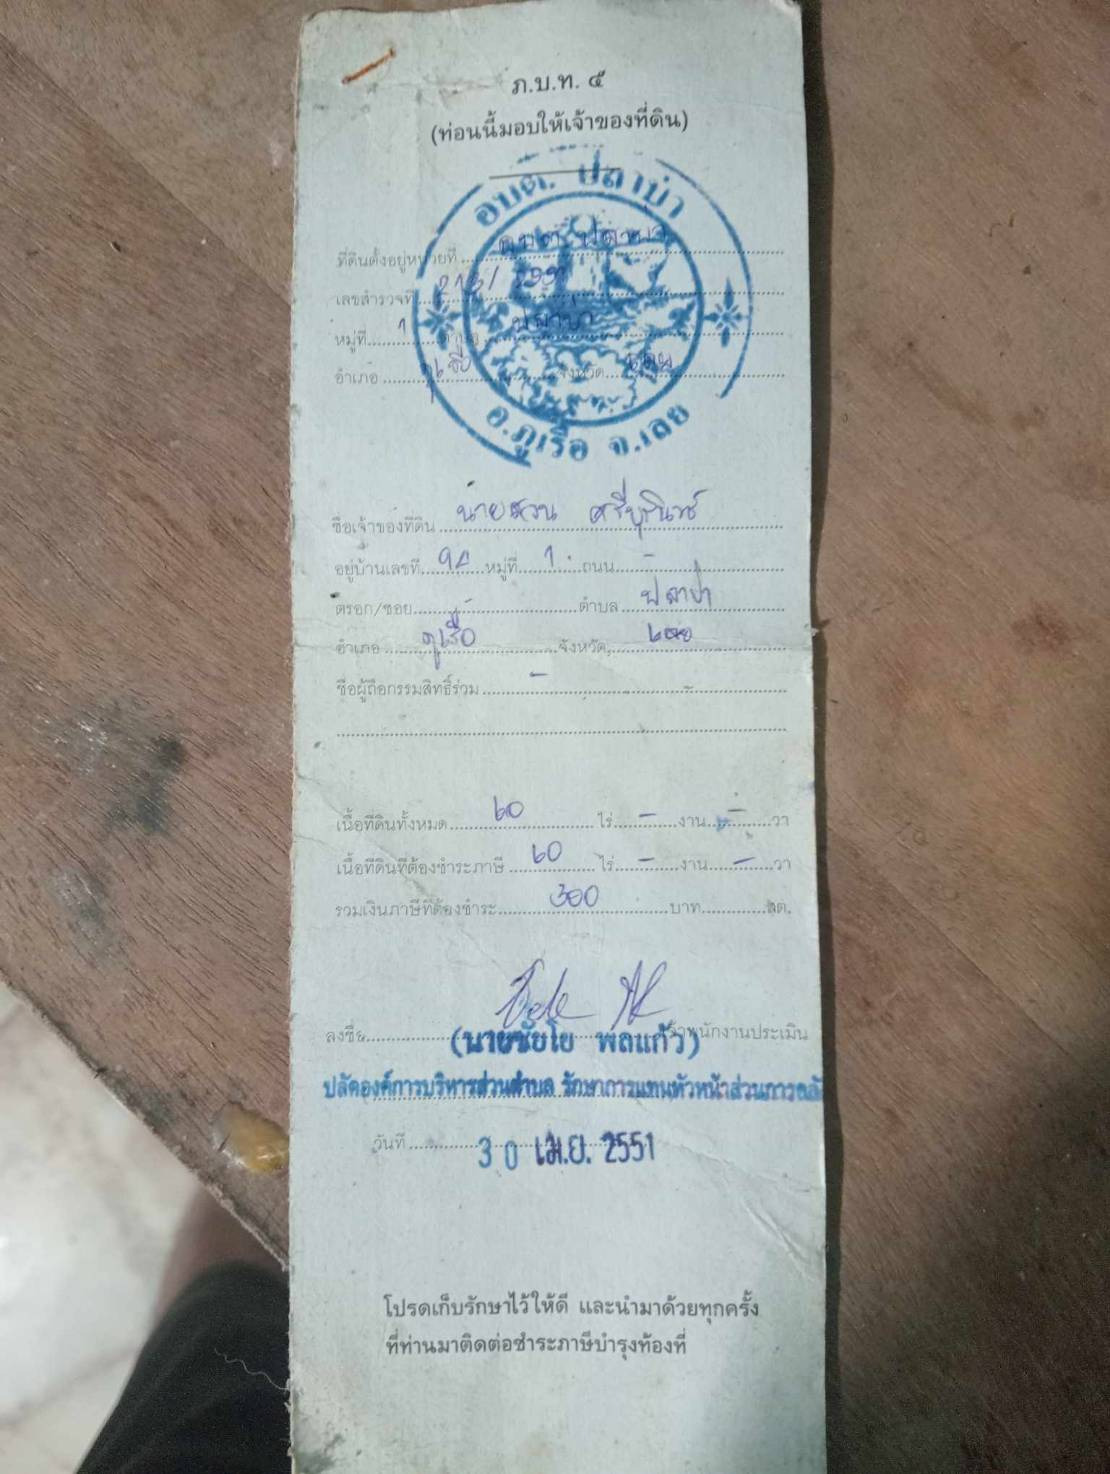 ภ.บ.ท. ๕
(ท่อนนี้มอบให้เจ้าของที่ดิน)
อบต. ปลาบ่า
ที่ดินตั้งอยู่หน่วยที่ อบต ปลาบ่า
เลขสำรวจที่
หมู่ที่ 1 ตำบล ปลาบ่า
อำเภอ ภูเรือ จังหวัด เลย
อ.ภูเรือ จ.เลย
ชื่อเจ้าของที่ดิน นาย
อยู่บ้านเลขที่ หมู่ที่ 1 ถนน -
ตรอก/ซอย - ตำบล ปลาบ่า
อำเภอ ภูเรือ จังหวัด เลย
ชื่อผู้ถือกรรมสิทธิ์ร่วม - -
เนื้อที่ดินทั้งหมด 60 ไร่ - งาน - วา
เนื้อที่ดินที่ต้องชำระภาษี 60 ไร่ - งาน - วา
รวมเงินภาษีที่ต้องชำระ 300 บาท สต.
ลงชื่อ เจ้าพนักงานประเมิน
(นายชัยโย พลแก้ว)
ปลัดองค์การบริหารส่วนตำบล รักษาการแทนหัวหน้าส่วนการคลัง
วันที่ 30 เม.ย. 2551
โปรดเก็บรักษาไว้ให้ดี และนำมาด้วยทุกครั้ง
ที่ท่านมาติดต่อชำระภาษีบำรุงท้องที่